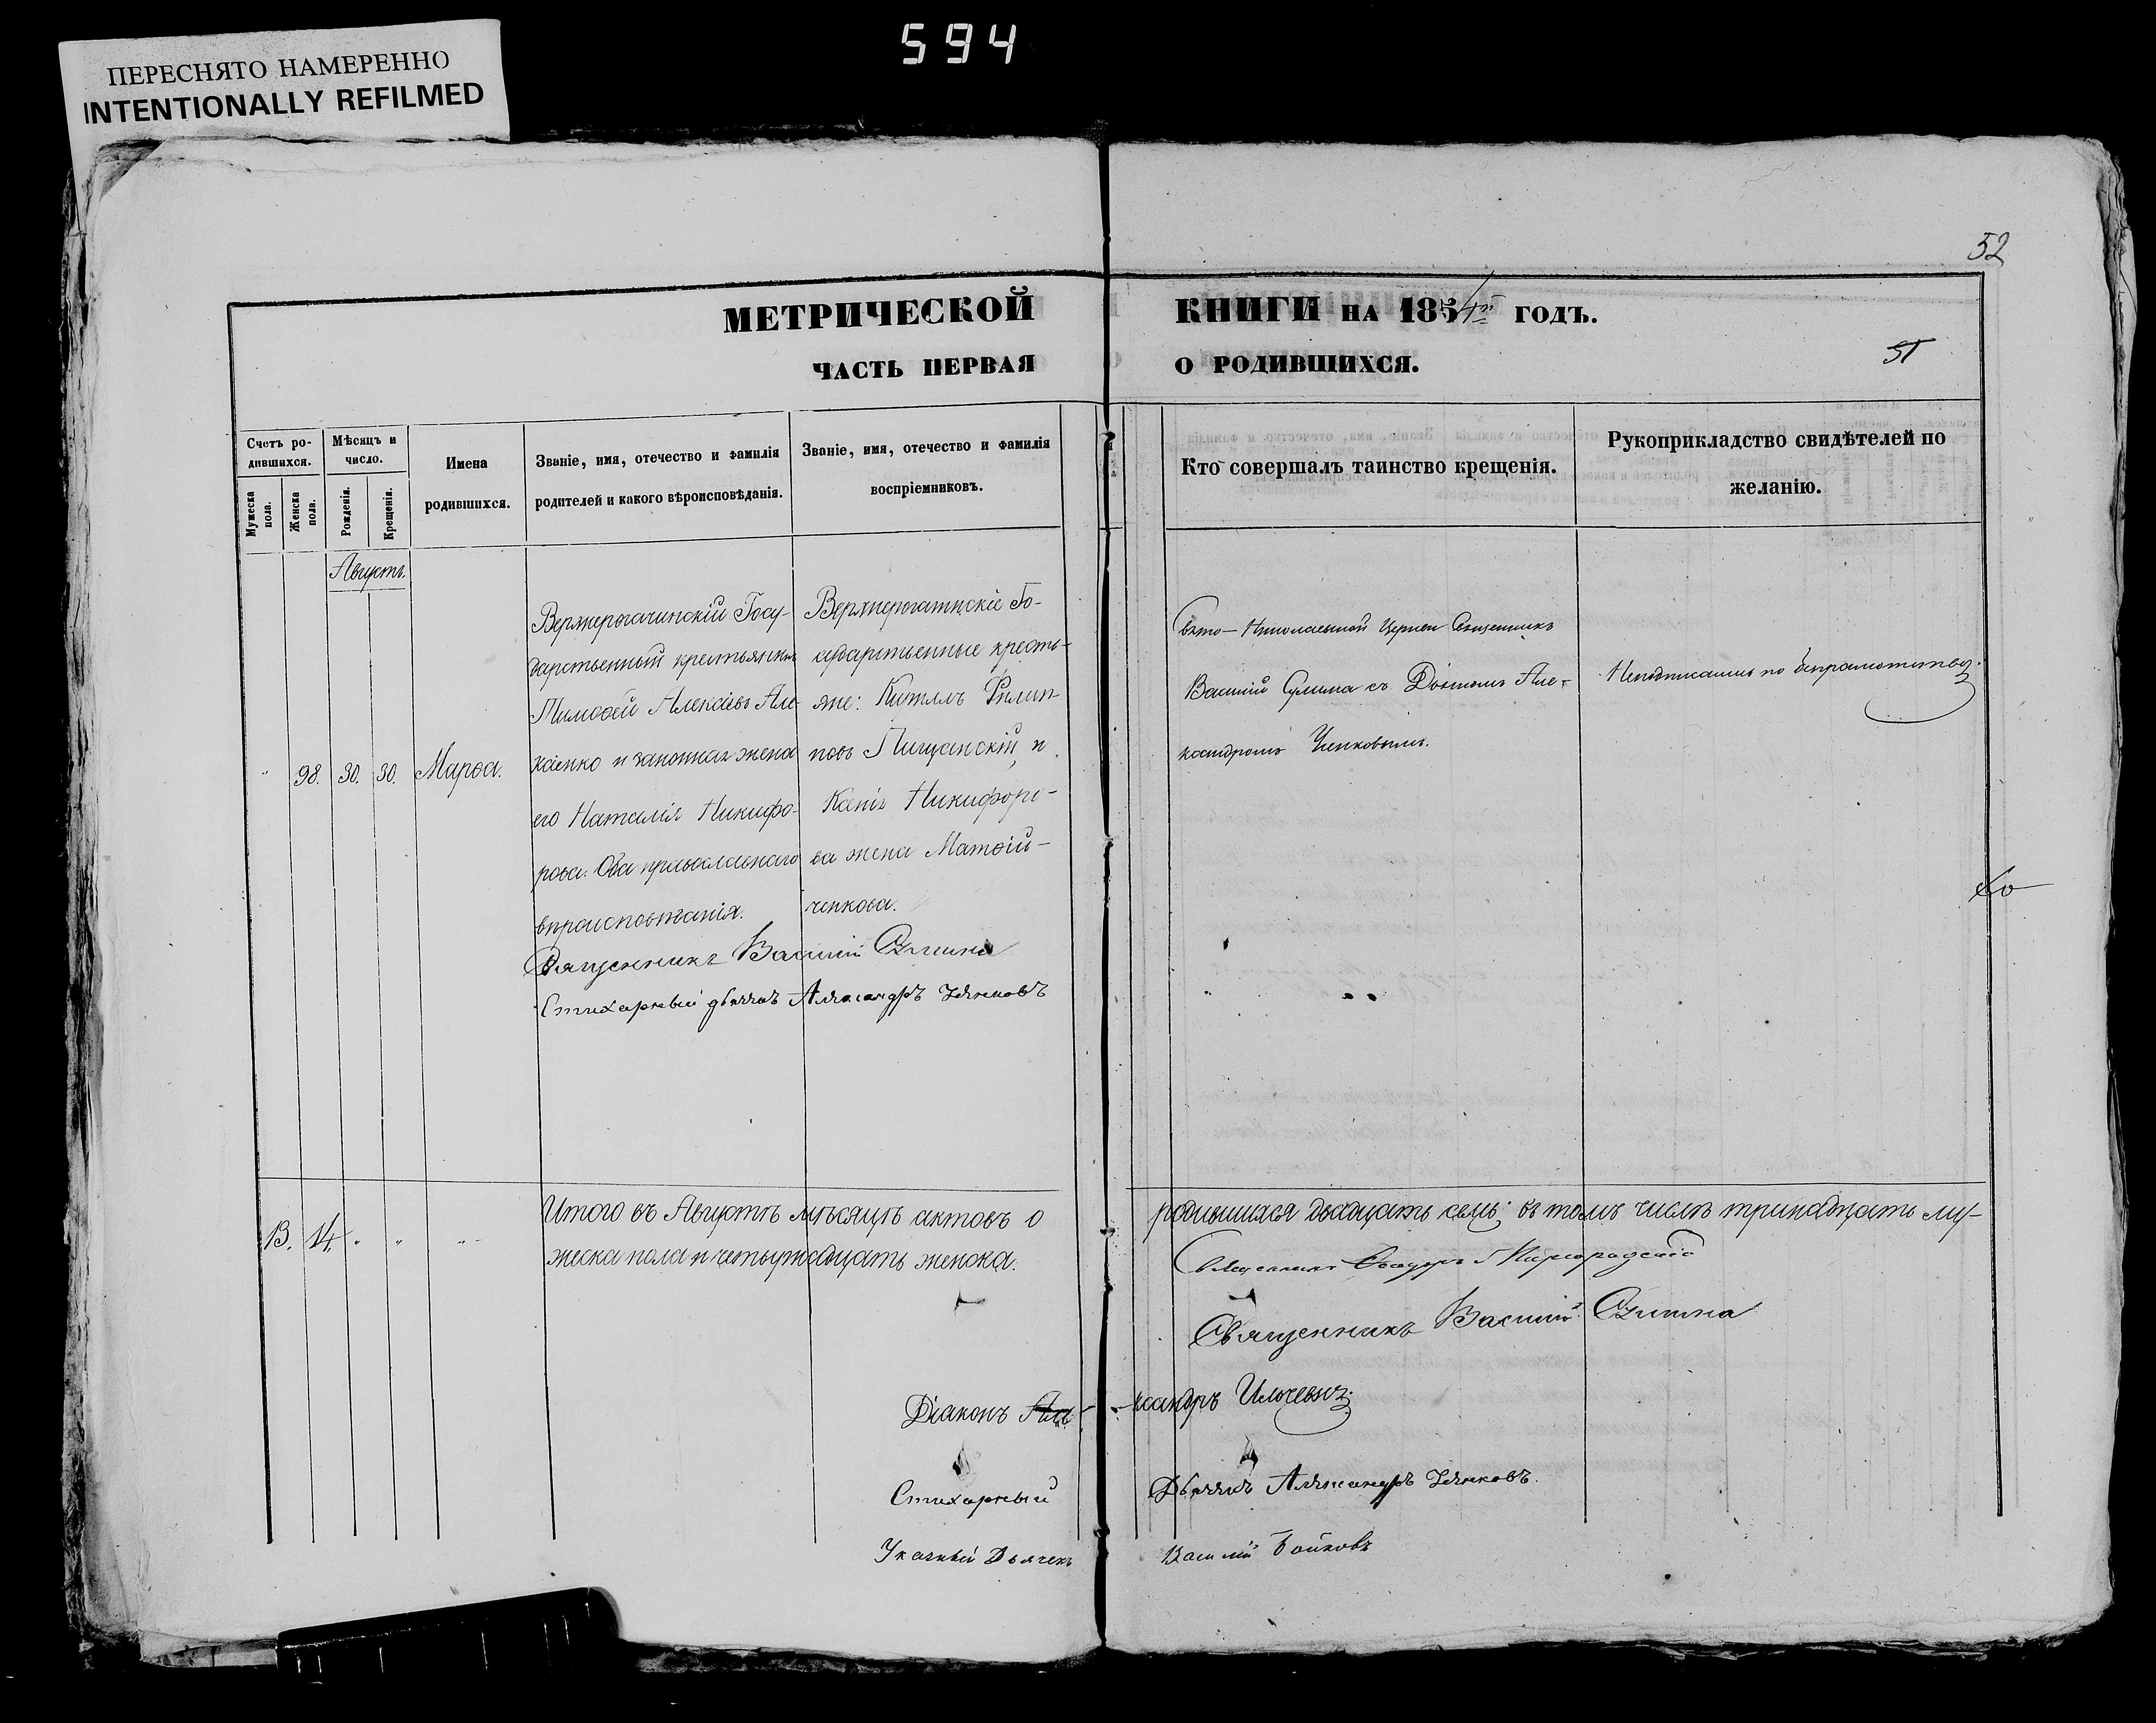 594
ПЕРЕСНЯТО НАМЕРЕННО
INTENTIONALLY REFILMED
52
МЕТРИЧЕСКОЙ КНИГИ НА 1854й ГОДЪ.
ЧАСТЬ ПЕРВАЯ О РОДИВШИХСЯ.
51
Счетъ ро-
дившихся.
Мужеска пола.
Женска пола.
Мѣсяцъ и
число.
Рожденія.
Крещенія.
Имена
родившихся.
Званіе, имя, отечество и фамилія
родителей и какого вѣроисповѣданія.
Званіе, имя, отечество и фамилія
воспріемниковъ.
Кто совершалъ таинство крещенія.
Рукоприкладство свидѣтелей по
желанію.
Августъ.
" 98. 30. 30. Марѳа.
Верхнерогачинскій Госу-
дарственный крестьянинъ
Тимоѳей Алексѣевъ Але-
ксѣенко и законная жена
его Наталія Никифо-
рова. Оба православнаго
вѣроисповѣданія.
Верхнерогачинскіе Го-
сударственные кресть-
яне: Филип-
повъ Пищанскій, и
Никифоро-
ва жена Матѳій-
ченкова.
Свято-Николаевской Церкви Священникъ
Василій Сулима съ Дьячкомъ Але-
ксандромъ Ченковымъ.
Неподписались по безграмотству.
Священникъ Василій Сулима
Стихарный дьячокъ Александръ Ченковъ
13. 14. " " "
Итого въ Августѣ мѣсяцѣ актовъ о родившихся двадцать семь: въ томъ числѣ тринадцать му-
жеска пола и четырнадцать женска.
Священникъ Миргородскій
Священникъ Василій Сулима
Діаконъ Александръ Ильчевичъ
Стихарный Дьячокъ Александръ Ченковъ.
Указный Дьячекъ Василій Бойковъ